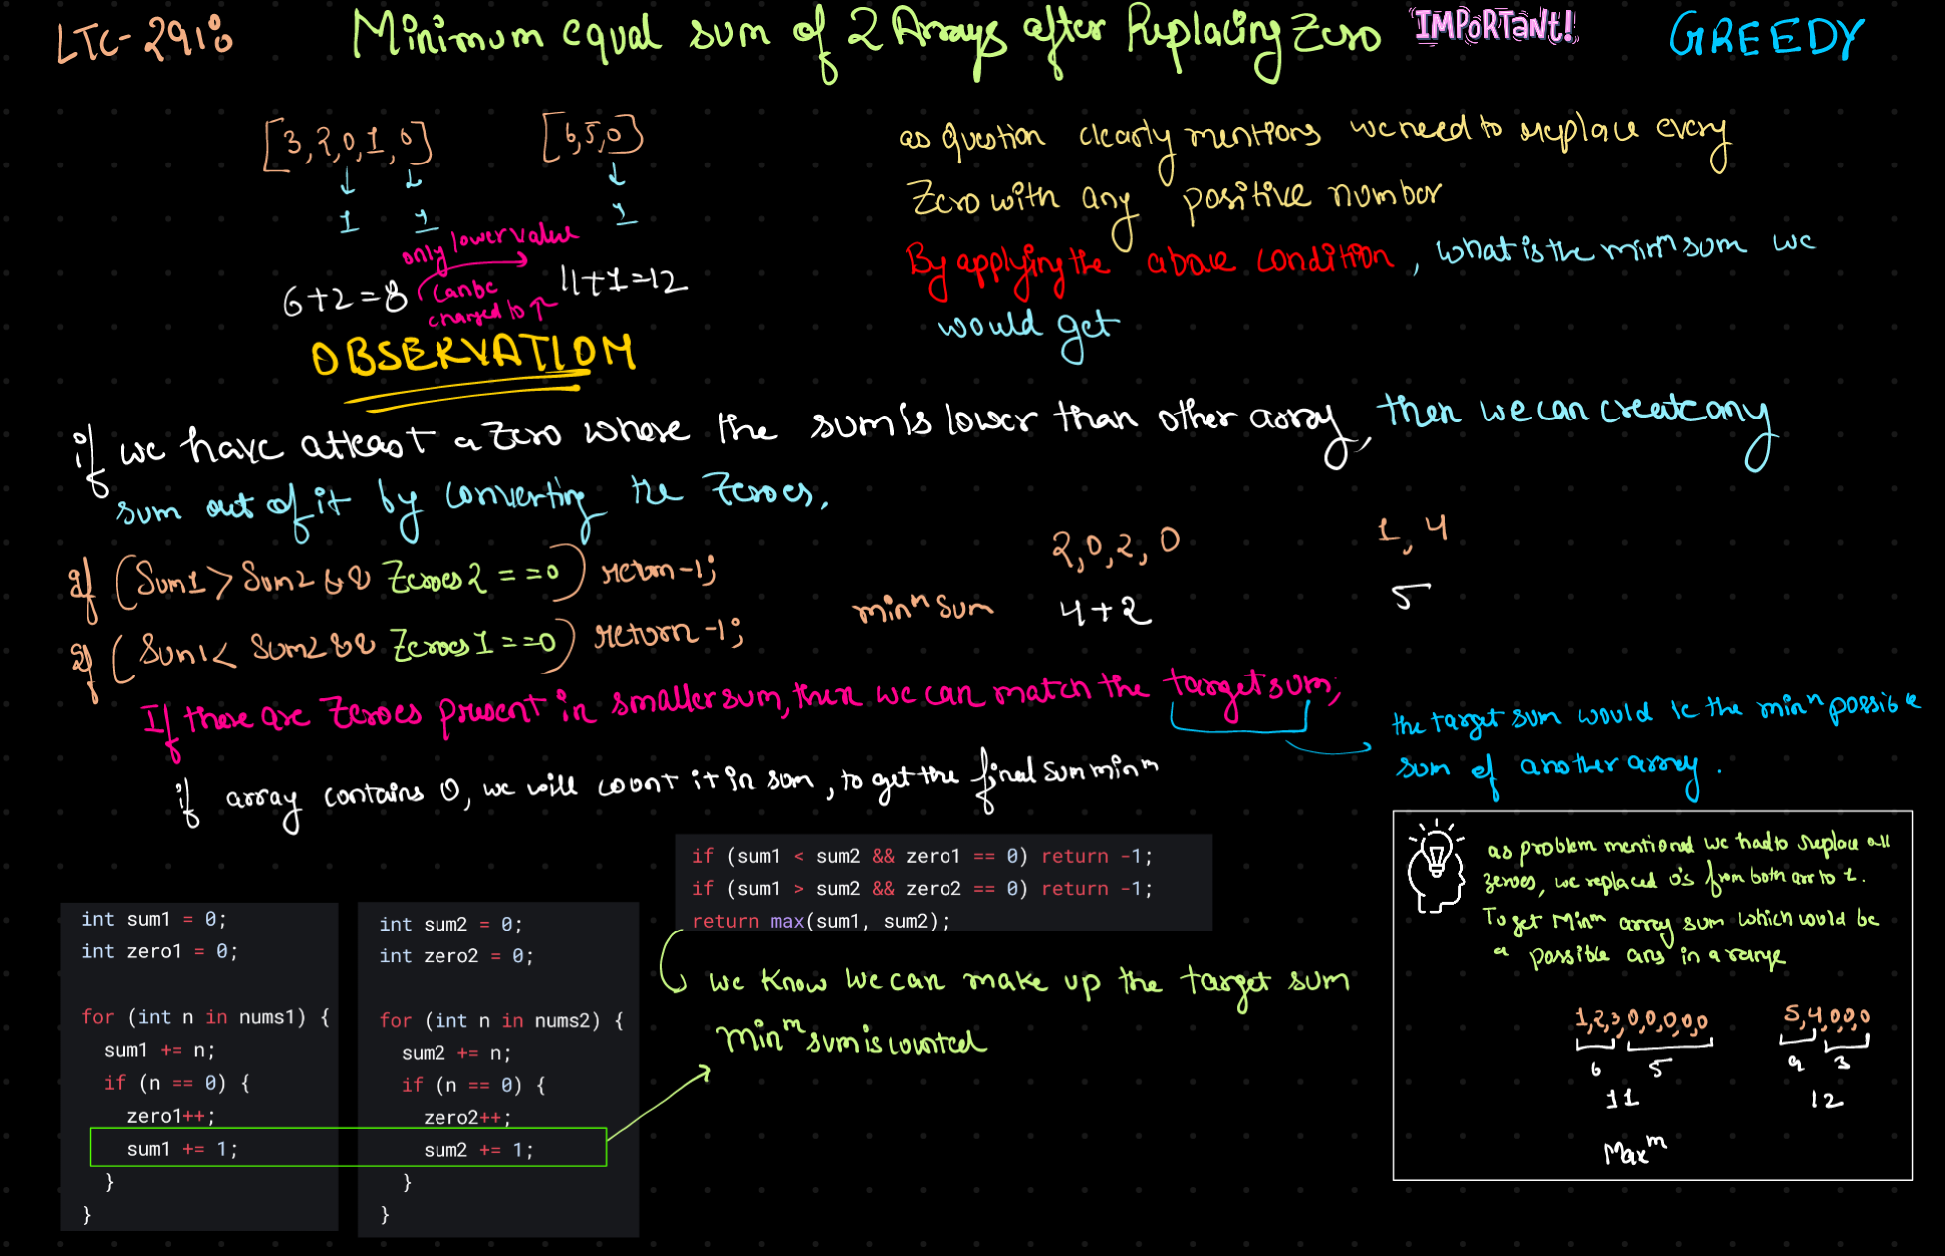 LTC-2918
Minimum equal sum of 2 Arrays after Replacing Zero
IMPORTANT!
GREEDY
[3,2,0,1,0]
[6,5,0]
↓ ↓ ↓
1 1 1
only lower value
6+2=8
can be
changed to ↑
11+1=12
OBSERVATION
as question clearly mentions we need to replace every
Zero with any positive number
By applying the above condition, what is the minm sum we
would get
if we have atleast a zero where the sum is lower than other array, then we can create any
sum out of it by converting the Zeroes.
if (Sum1 > Sum2 && Zeroes2 ==0) return -1;
if (Sum1 < Sum2 && Zeroes1 ==0) return -1;
2,0,2,0
1, 4
minm sum
4+2
5
If there are Zeroes present in smaller sum, then we can match the target sum;
the target sum would be the minm possible
sum of another array.
if array contains 0, we will count it in sum, to get the final sum minm
if (sum1 < sum2 && zero1 == 0) return -1;
if (sum1 > sum2 && zero2 == 0) return -1;
return max(sum1, sum2);
we know we can make up the target sum
minm sum is counted
int sum1 = 0;
int zero1 = 0;
for (int n in nums1) {
sum1 += n;
if (n == 0) {
zero1++;
sum1 += 1;
}
}
int sum2 = 0;
int zero2 = 0;
for (int n in nums2) {
sum2 += n;
if (n == 0) {
zero2++;
sum2 += 1;
}
}
as problem mentioned we had to replace all
zeroes, we replaced 0's from both arr to 1.
To get Minm array sum which would be
a possible ans in a range
1,2,3,0,0,0,0,0
5,4,0,0,0
6 5
9 3
11
12
Maxm